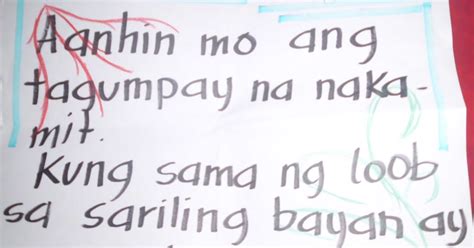 Aanhin mo ang
tagumpay na naka-
mit.
Kung sama ng loob
sa sariling bayan ay